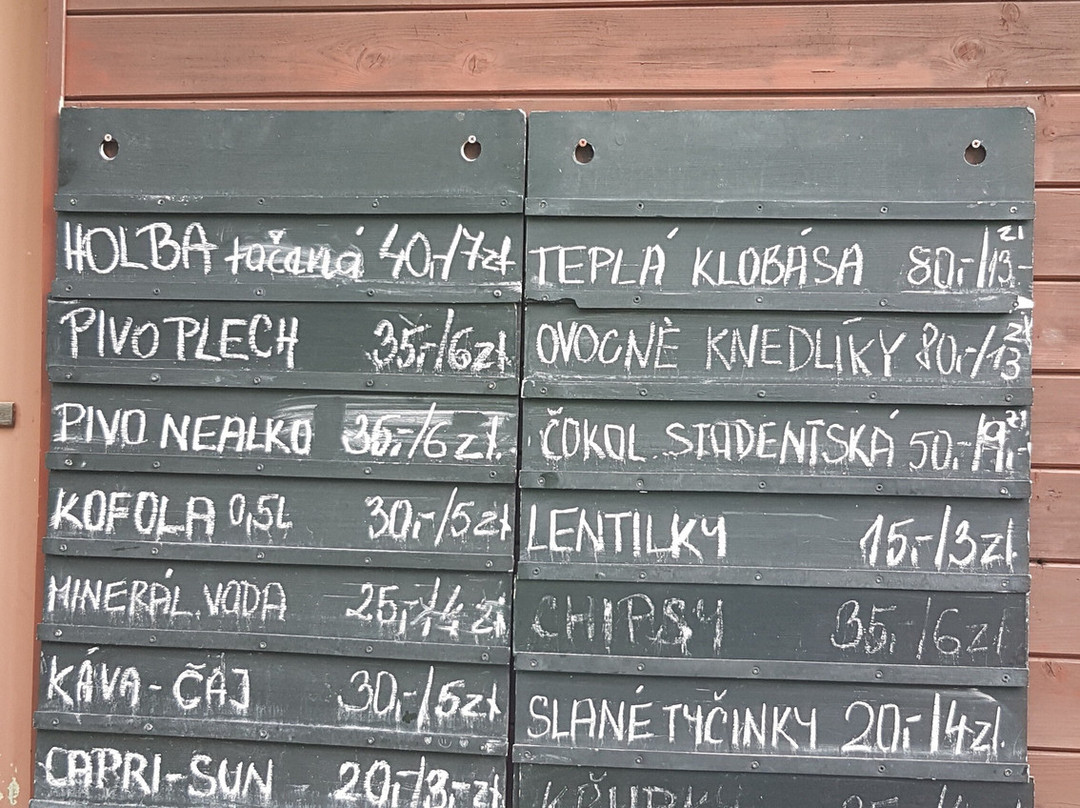 HOLBA točená 40,-/7zł
PIVO PLECH 35,-/6zł
PIVO NEALKO 35,-/6zł.
KOFOLA 0,5L 30,-/5zł
MINERÁL. VODA 25,-/4zł
KÁVA - ČAJ 30,-/5zł
CAPRI-SUN 20,-/3,-zł
TEPLÁ KLOBÁSA 80,-/13,- zł
OVOCNÉ KNEDLÍKY 80,-/13 zł
ČOKOL. STUDENTSKÁ 50,-/9,- zł
LENTILKY 15,-/3zł
CHIPSY 35,-/6zł
SLANÉ TYČINKY 20,-/4zł.
KŘUPKY